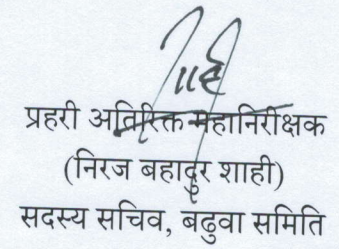 प्रहरी अतिरिक्त महानिरीक्षक
(निरज बहादुर शाही)
सदस्य सचिव, बढुवा समिति